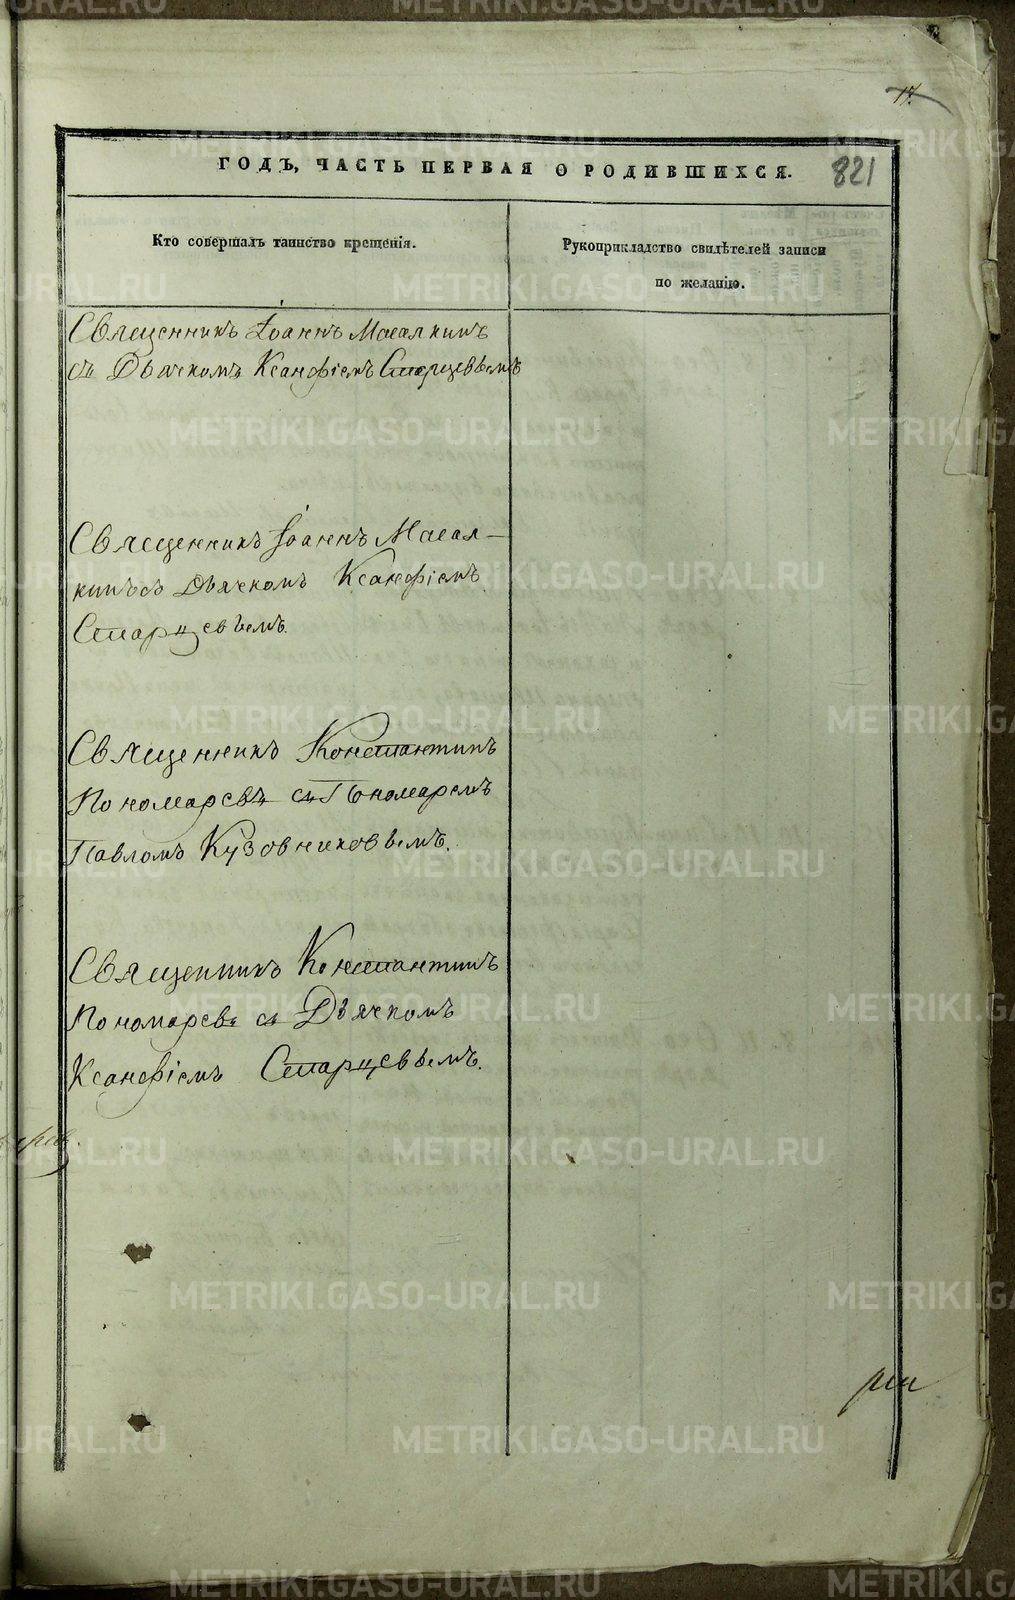 17.
ГОДЪ, ЧАСТЬ ПЕРВАЯ О РОДИВШИХСЯ.
821
Кто совершалъ таинство крещенія.
Рукоприкладство свидѣтелей записи
по желанію.
Священникъ Іоаннъ Масалкинъ
съ Дьячкомъ Ксанфіемъ Старцевьемъ
Священникъ Іоаннъ Масал-
кинъ съ Дьячкомъ Ксанфіемъ
Старцевьемъ.
Священникъ Константинъ
Пономаревъ съ Пономаремъ
Павломъ Кузовниковьемъ.
Священникъ Константинъ
Пономаревъ съ Дьячкомъ
Ксанфіемъ Старцевьемъ.
METRIKI.GASO-URAL.RU